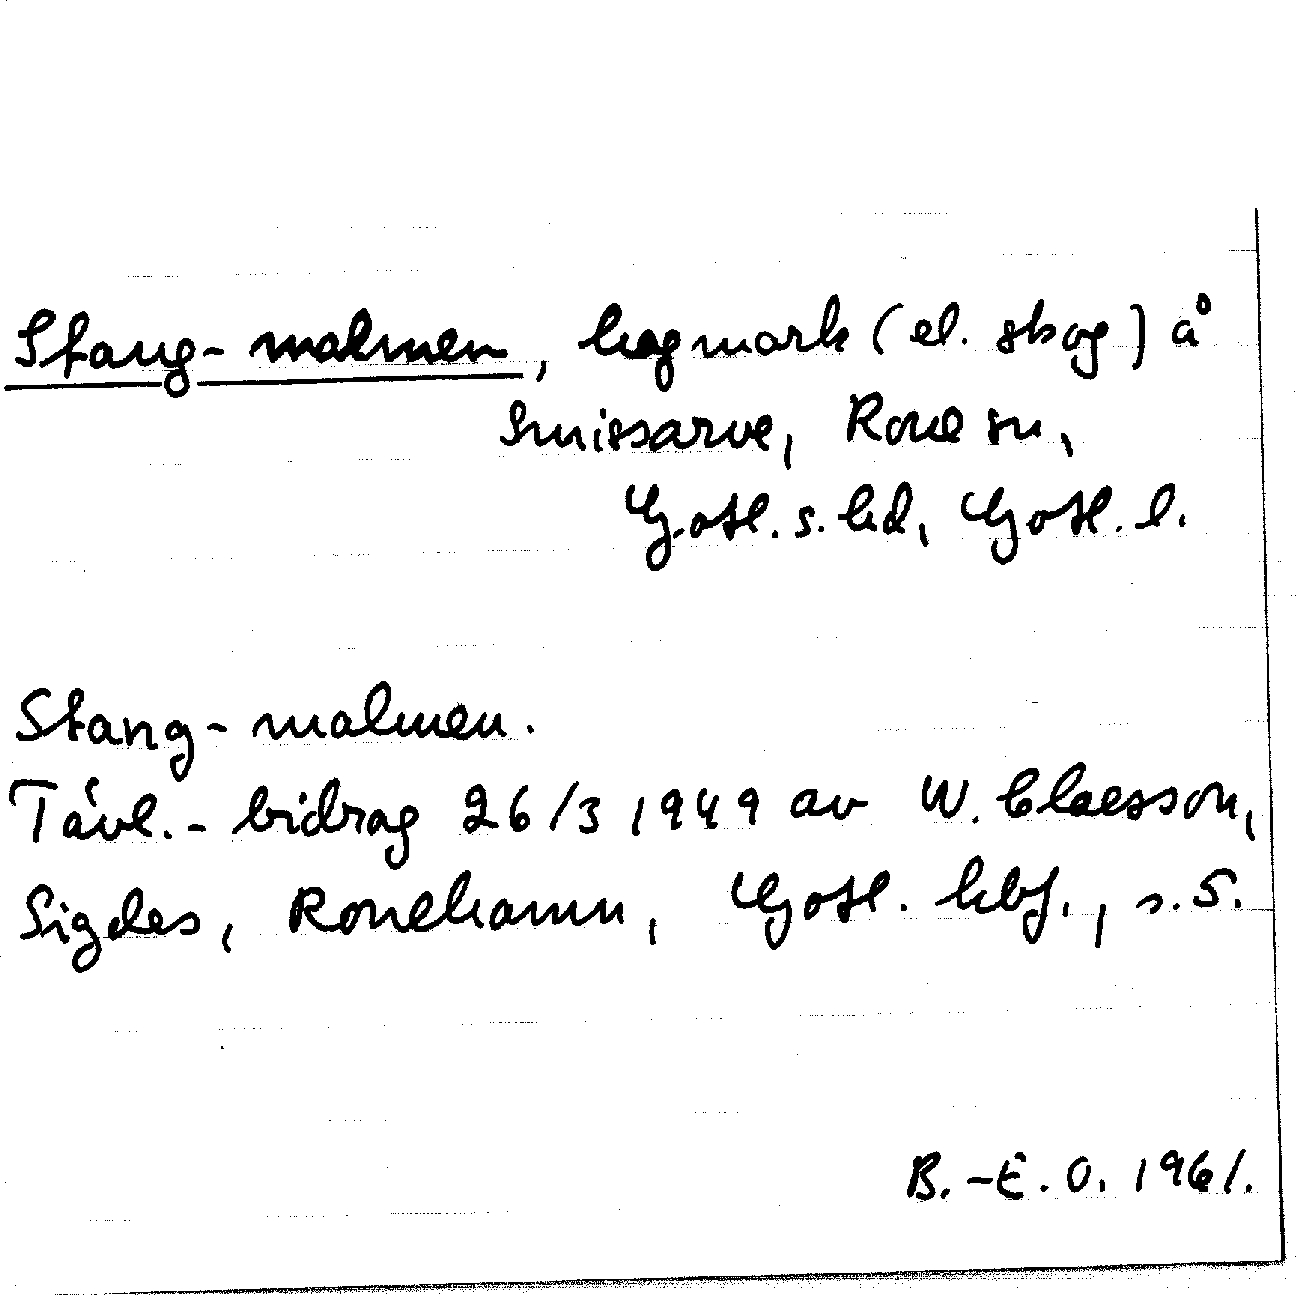 Stang-malmen, hagmark (el. skog) å
Smissarve, Rone sn,
Gotl. s. hd, Gotl. l.
Stang-malmen.
Tävl.-bidrag 26/3 1949 av W. Claesson,
Sigdes, Ronehamn, Gotl. hbf., s. 5.
B.-E. O. 1961.